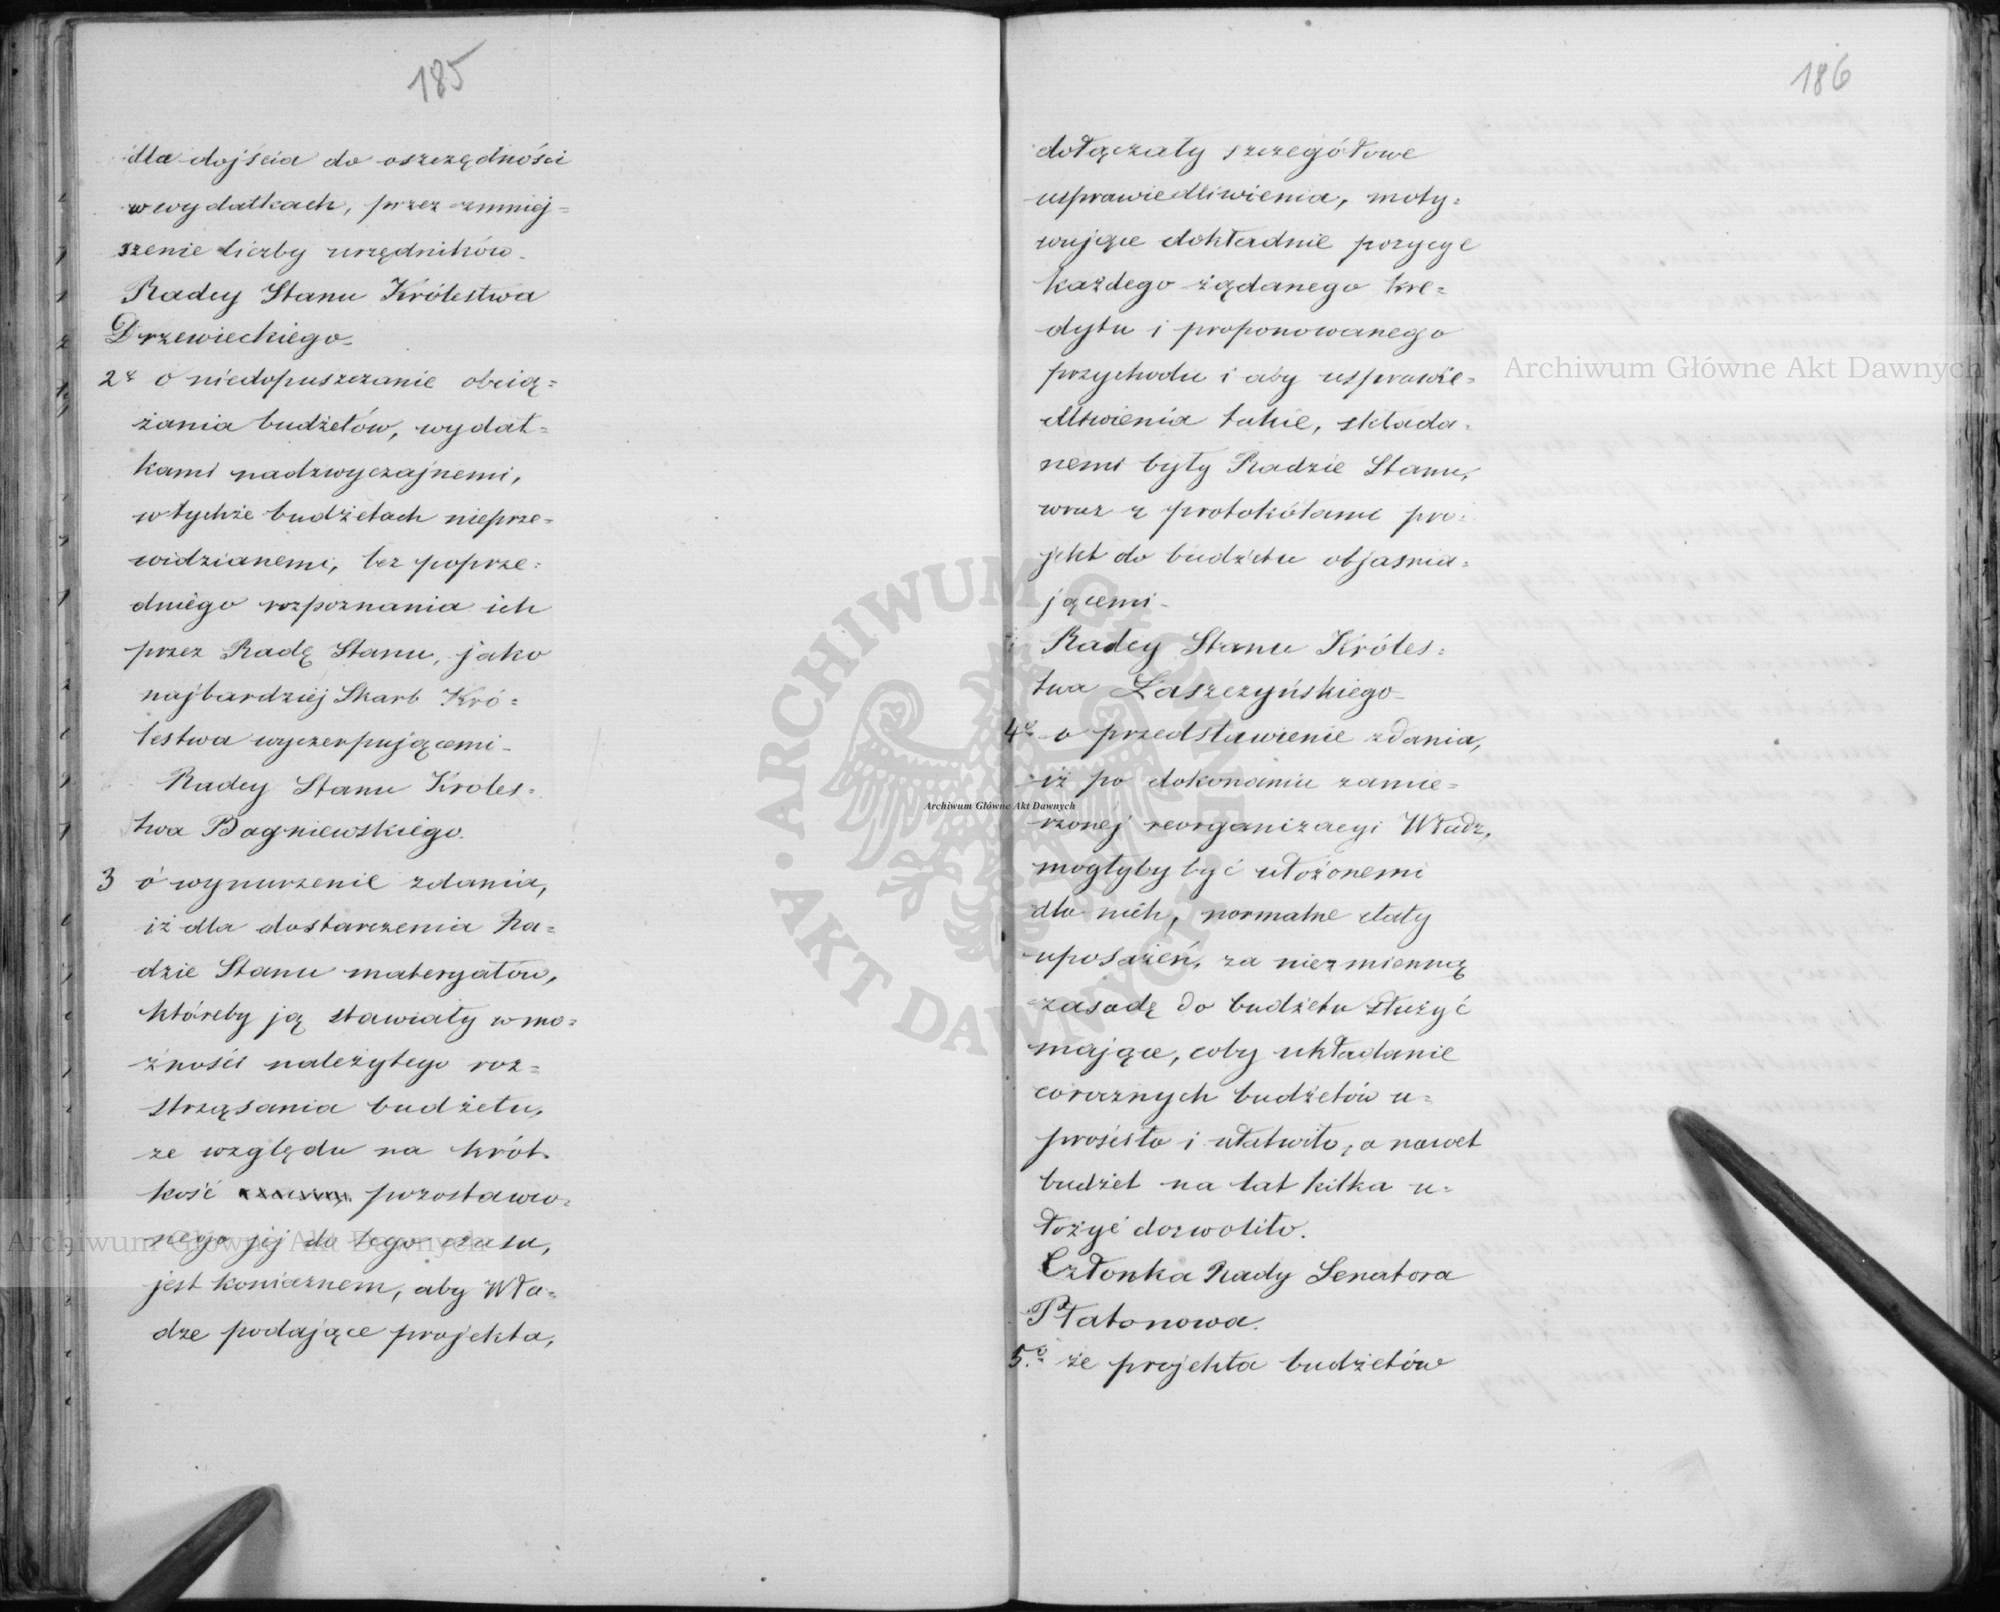 185
dla dojścia do oszczędności
w wydatkach, przez zmniej=
szenie liczby urzędników.
Radcy Stanu Królestwa
Drzewieckiego.
2o o niedopuszczanie obcią=
żania budżetów, wydat=
kami nadzwyczajnemi,
w tychże budżetach nieprze=
widzianemi, bez poprze=
dniego rozpoznania ich
przez Radę Stanu, jako
najbardziej Skarb Kró=
lestwa wyczerpującemi_
Radcy Stanu Króles=
twa Bagniewskiego.
3 o wynurzenie zdania,
iż dla dostarczenia Ra=
dzie Stanu materyałów,
któreby ją stawiały w mo=
żności należytego roz=
strząsania budżetu,
ze względu na krót=
kość pozostawio=
nego jej do tego czasu,
jest koniecznem, aby Wła=
dze podające projekta,
186
dołączały szczegółowe
usprawiedliwienia, moty=
wujące dokładnie pozycye
każdego żądanego kre=
dytu i proponowanego
przychodu i aby usprawie=
dliwienia takie, składa=
nemi były Radzie Stanu,
wraz z protokółami pro=
jekt do budżetu objaśnia=
jącemi_
Radcy Stanu Króles=
twa Łaszczyńskiego_
4o o przedstawienie zdania,
iż po dokonaniu zamie=
rzonej reorganizacyi Władz,
mogłyby być ułożonemi
dla nich, normalne etaty
uposażeń, za niezmienną
zasadę do budżetu służyć
mające, coby układanie
corocznych budżetów u=
prościło i ułatwiło, a nawet
budżet na lat kilka u=
łożyć dozwoliło.
Członka Rady Senatora
Płatonowa.
5.o że projekta budżetów
Archiwum Główne Akt Dawnych
Archiwum Główne Akt Dawnych
Archiwum Główne Akt Dawnych
ARCHIWUM GŁÓWNE
AKT DAWNYCH